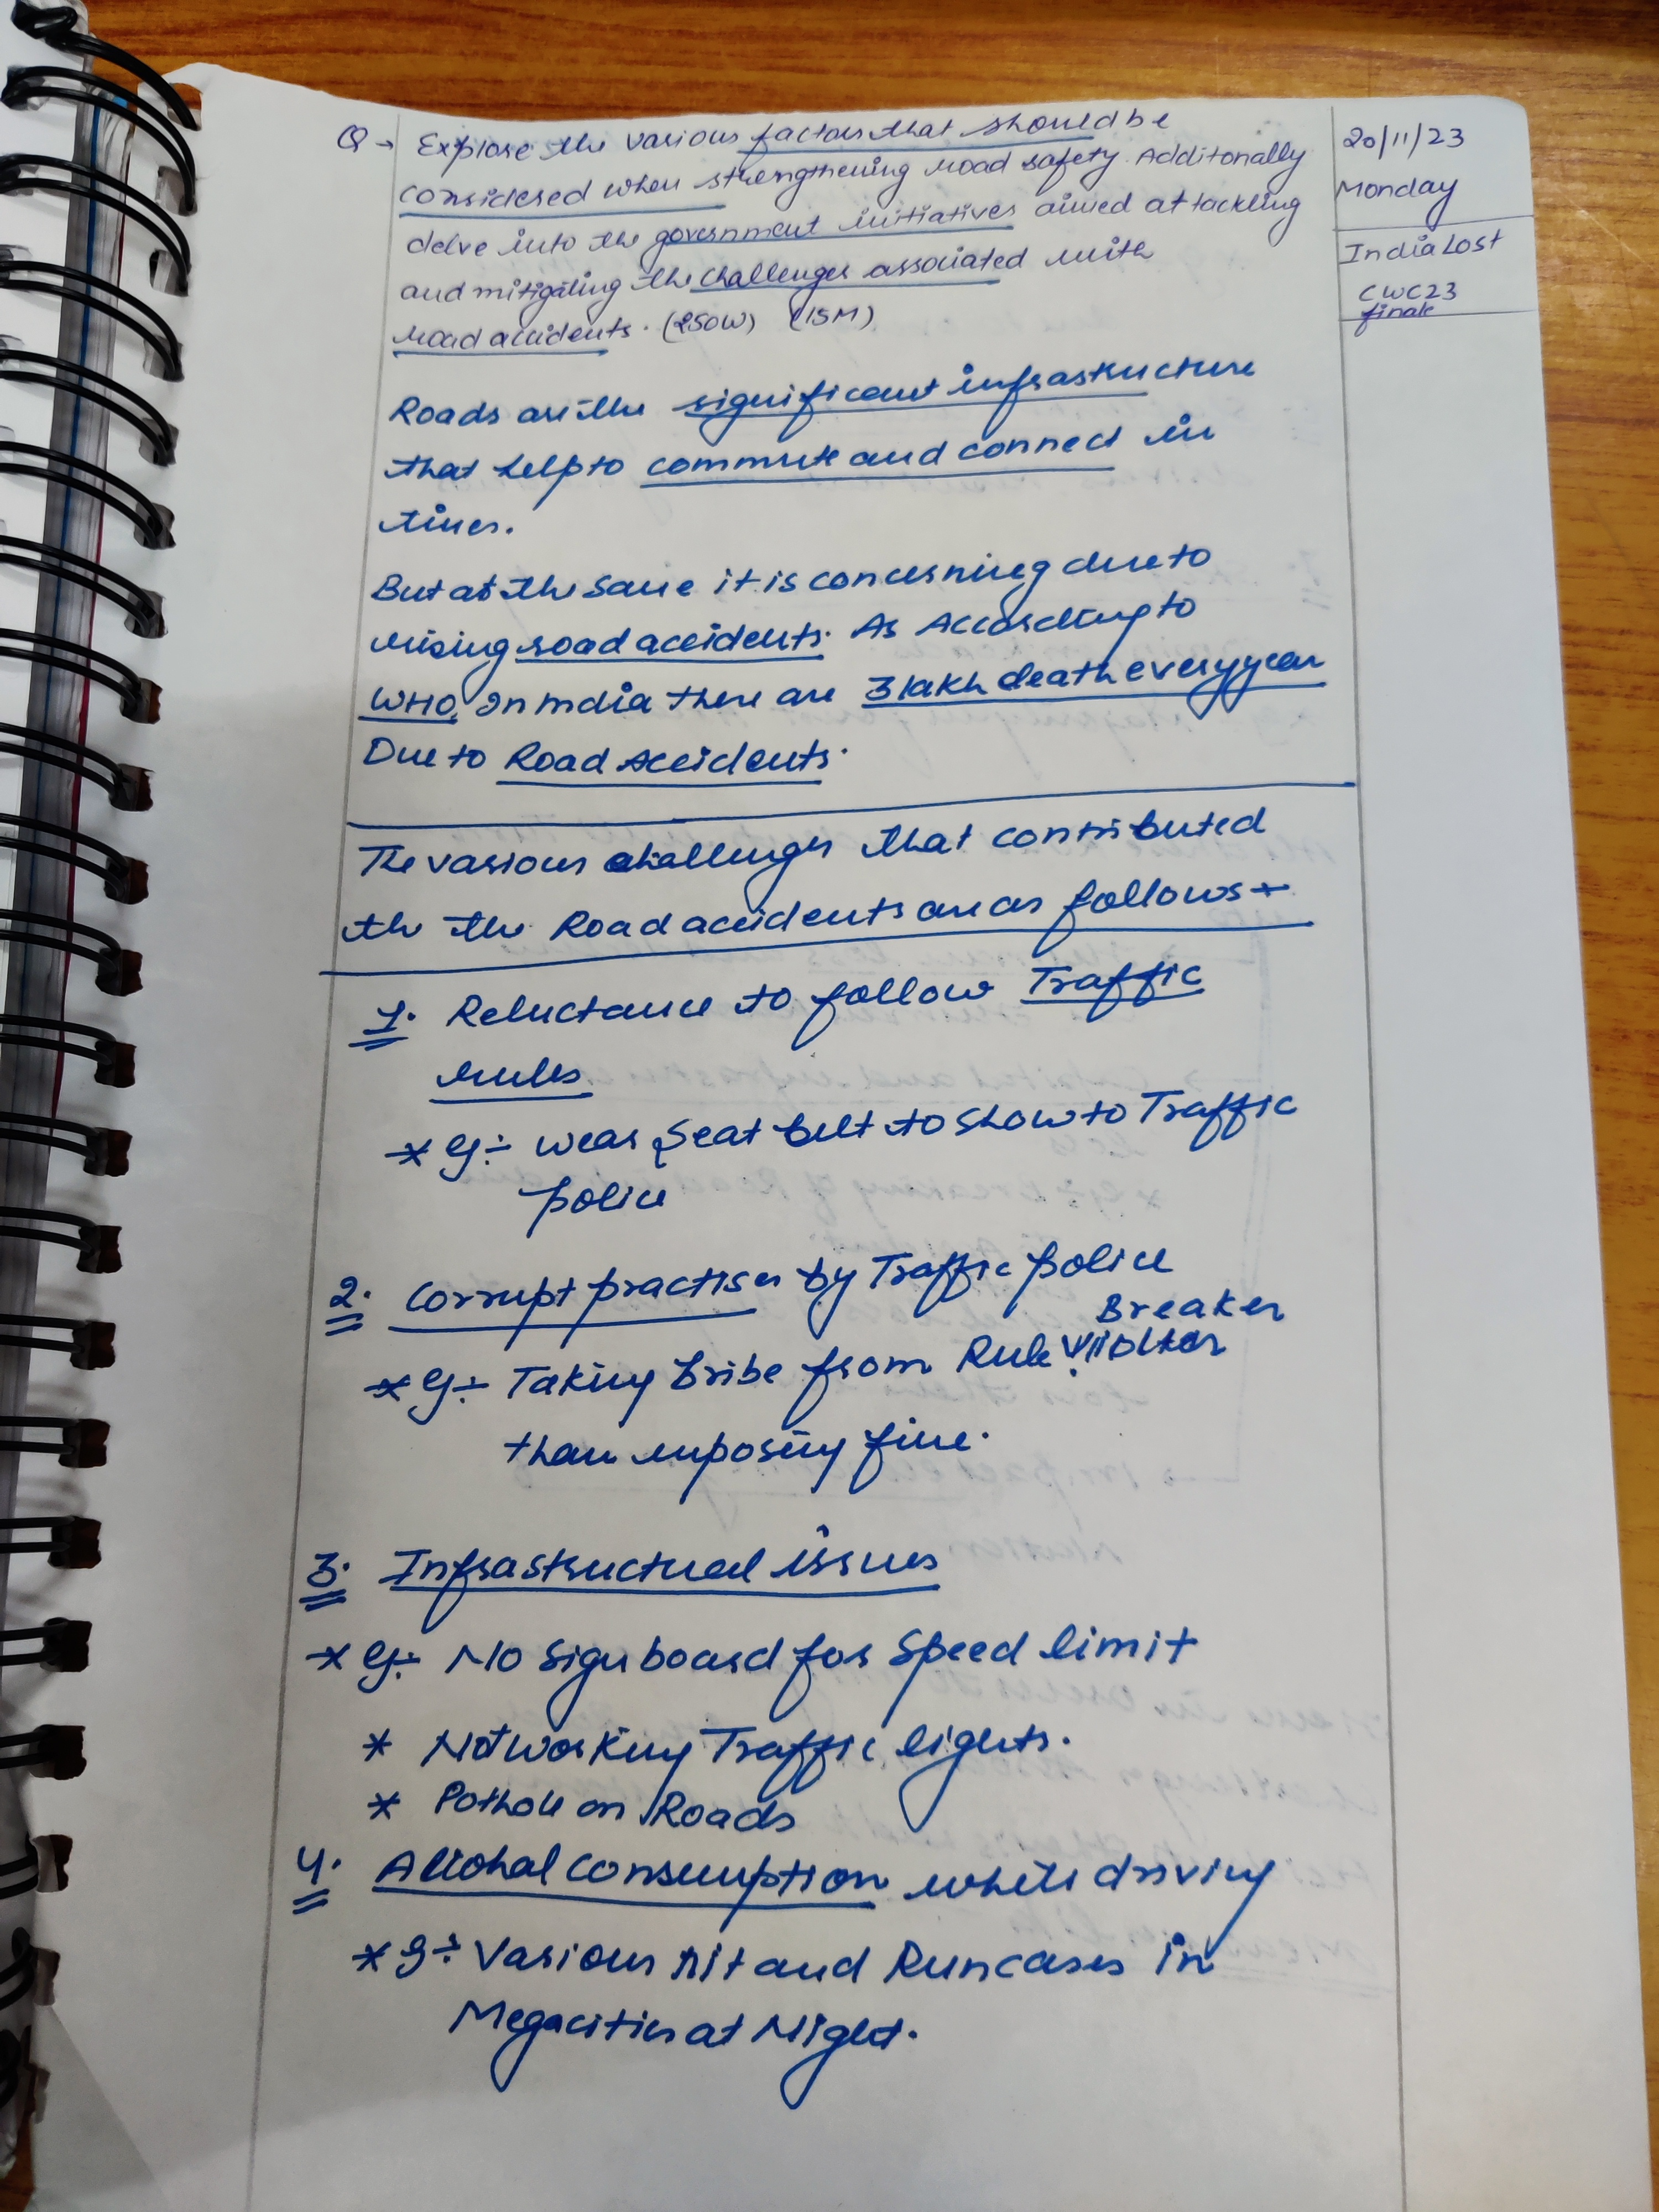 Q → Explore the various factors that should be
considered when strengthening road safety. Additonally
delve into the government initiatives aimed at tackling
and mitigating the challenges associated with
road accidents. (250W) (15M)
20/11/23
Monday
India Lost
CWC23
finale
Roads are the significant infrastructure
that help to commute and connect in
times.
But at the same it is concerning due to
rising road accidents. As According to
WHO, In India there are 3 lakh death every year
Due to Road Accidents.
The various challenges that contributed
th the Road accidents are as follows →
1. Reluctance to follow Traffic
rules
* eg:- wear seat belt to show to Traffic
police
2. Corrupt practises by Traffic police
Breaker
* eg:- Taking bribe from Rule
than imposing fine.
3. Infrastructural issues
* eg:- No Sign board for Speed limit
* Not working Traffic lights.
* Pothole on Roads
4. Alcohal consumption while driving
* eg:- Various hit and Run cases in
Megacities at Night.